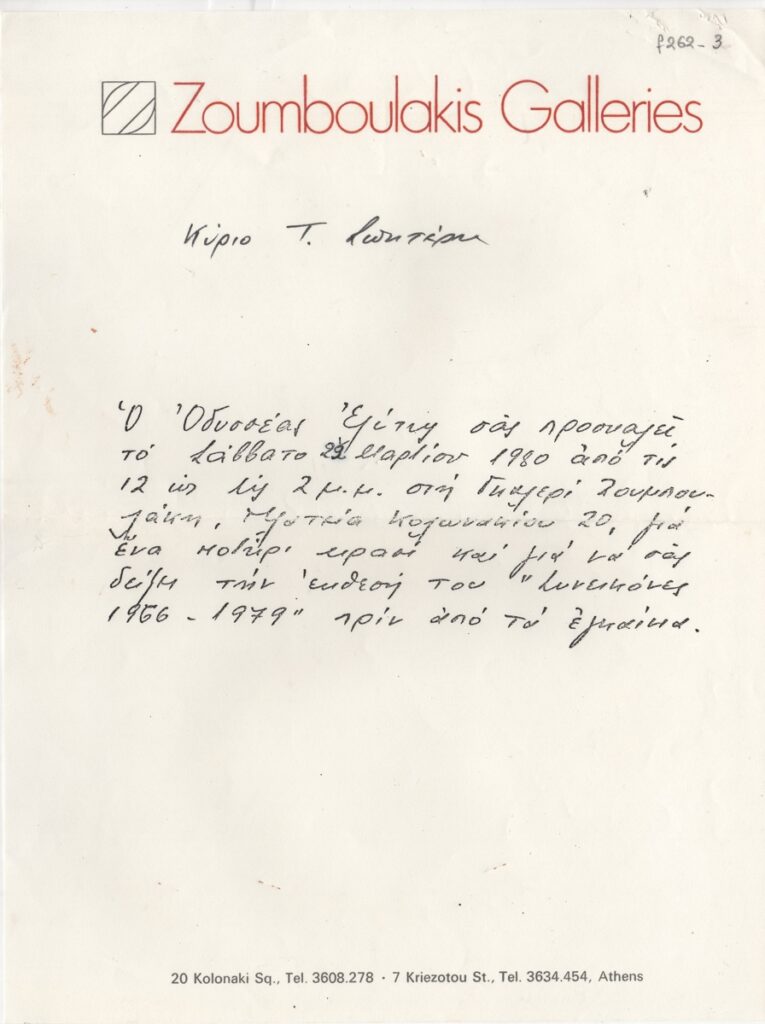 f262-3
Zoumboulakis Galleries
Κύριο Τ. Σπητέρη
Ὁ Ὀδυσσέας Ἐλύτης σᾶς προσκαλεῖ
τό Σάββατο 29 Μαρτίου 1980 ἀπό τίς
12 ὡς τίς 2 μ.μ. στή Γκαλερί Ζουμπου-
λάκη, Πλατεῖα Κολωνακίου 20, γιά
ἕνα ποτήρι κρασί καί γιά νά σᾶς
δείξη τήν ἔκθεσή του "Συνεικόνες
1966 - 1979" πρίν ἀπό τά ἐγκαίνια.
20 Kolonaki Sq., Tel. 3608.278 · 7 Kriezotou St., Tel. 3634.454, Athens